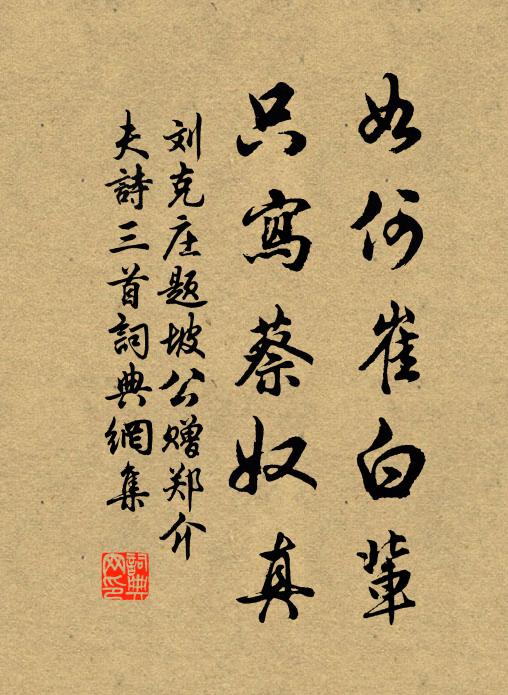 如何崔白輩
只寫蔡奴真
刘克庄题坡公赠郑介
夫詩三首詞典網集
詞典網印